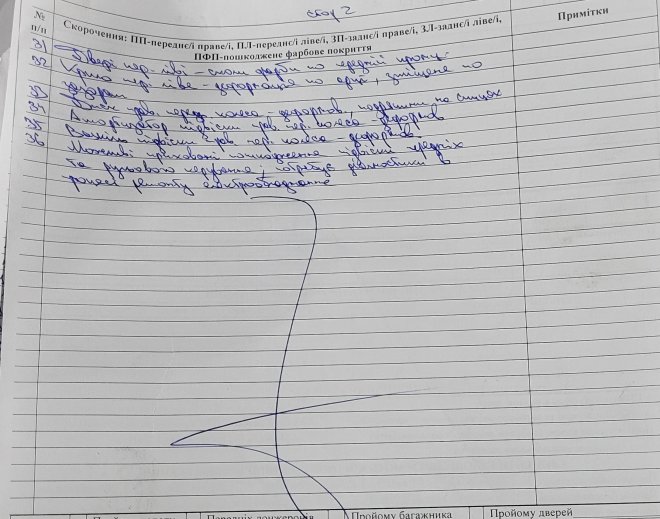 стор 2
№ п/п
Скорочення: ПП-переднє/і праве/і, ПЛ-переднє/і ліве/і, ЗП-заднє/і праве/і, ЗЛ-заднє/і ліве/і,
ПФП-пошкоджене фарбове покриття
Примітки
31 Двері пер. ліві - сколи фарби по передній кромці
32 Крило пер. ліве - деформація по арці, зміщене по
зазорам
33 Диск лів. перед. колеса - деформов. подряпини на спицях
34 Амортизатор підвіски лів. пер. колеса - деформов
35 Важіль підвіски лів. пер. колеса - деформов.
36 Можливі приховані пошкодження підвіски передніх
та рульового керування, потребує діагностики в
процесі ремонту електрообладнання
Передніх лонжеронів
Пройому багажника
Пройому дверей